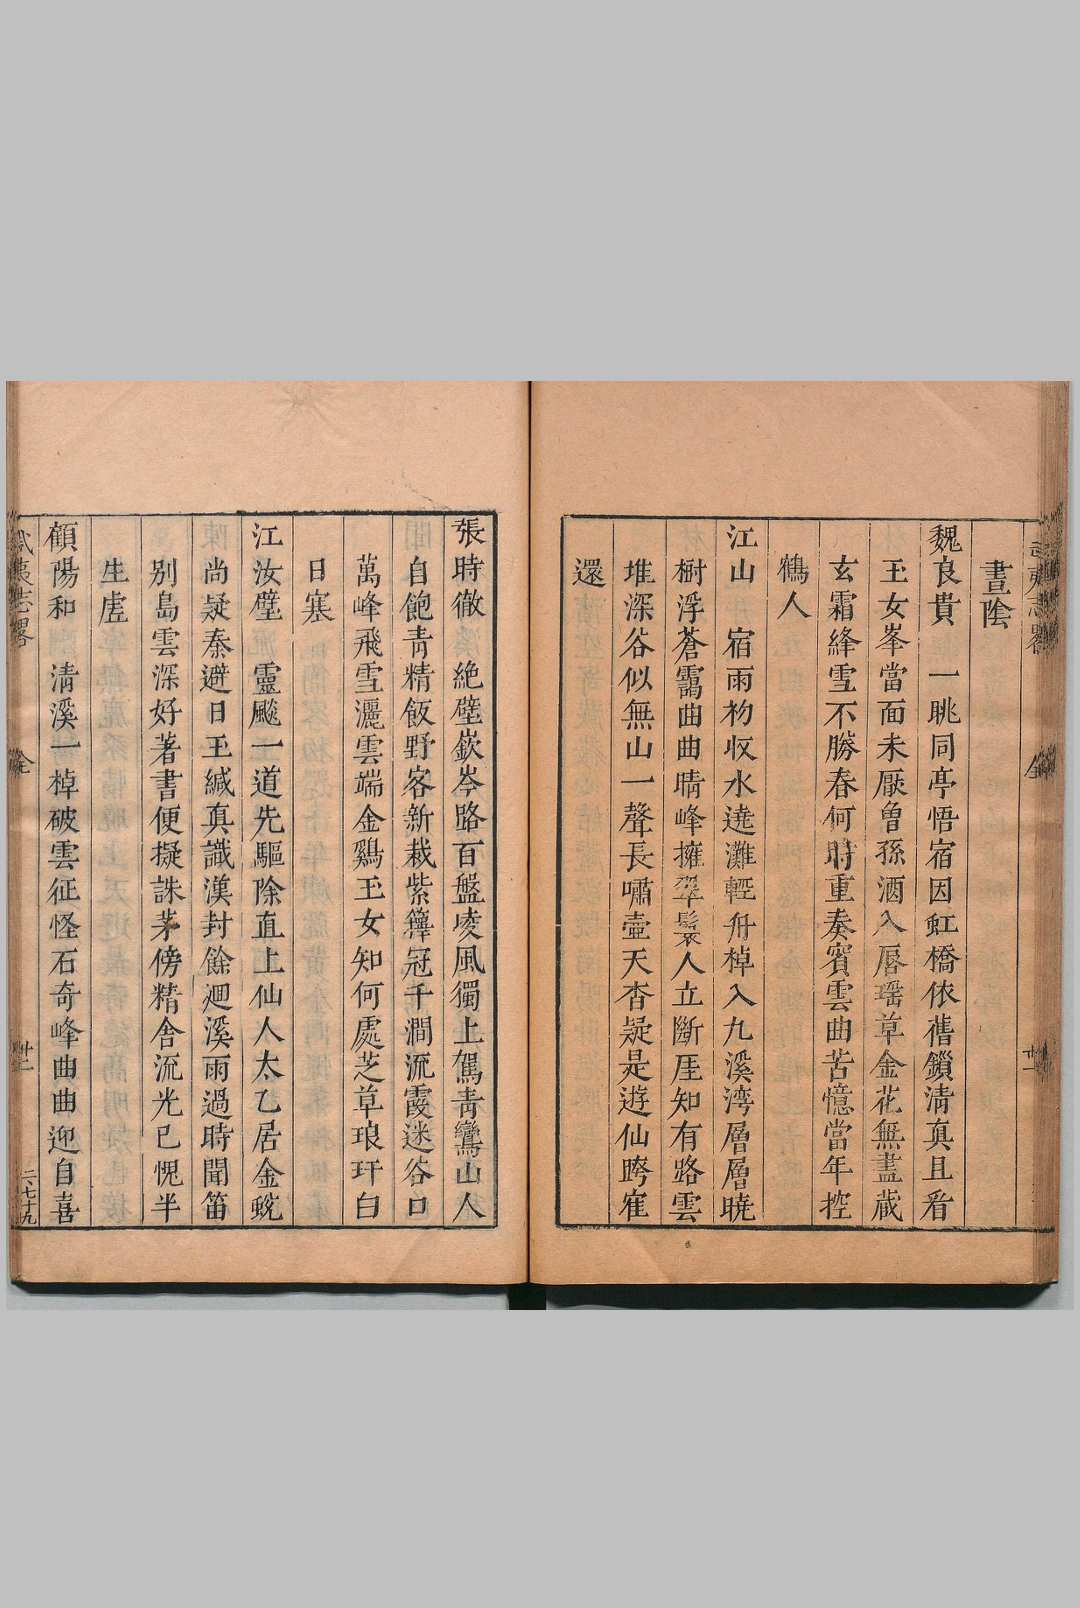 晝陰
魏良貴　一眺同亭悟宿因虹橋依舊鎖清真且看
玉女峯當面未厭曾孫酒入唇瑤草金花無盡藏
玄霜絳雪不勝春何時重奏賓雲曲苦憶當年控
鶴人
江山　宿雨初收水遶灘輕舟棹入九溪湾層層曉
樹浮蒼靄曲曲晴峰擁翠鬟人立斷厓知有路雲
堆深谷似無山一聲長嘯壺天杳疑是遊仙跨寉
還
張時徹　絶壁嶔岑路百盤凌風獨上駕青鸞山人
自飽青精飯野客新裁紫籜冠千澗流霞迷谷口
萬峰飛雪灑雲端金鷄玉女知何處芝草琅玕白
日寒
江汝璧　靈飈一道先驅除直上仙人太乙居金蛻
尚疑秦避日玉緘真識漢封餘迴溪雨過時聞笛
別島雲深好著書便擬誅茅傍精舍流光已愧半
生虗
顧陽和　清溪一棹破雲征怪石奇峰曲曲迎自喜
武夷志畧
全
卄二
二七十九